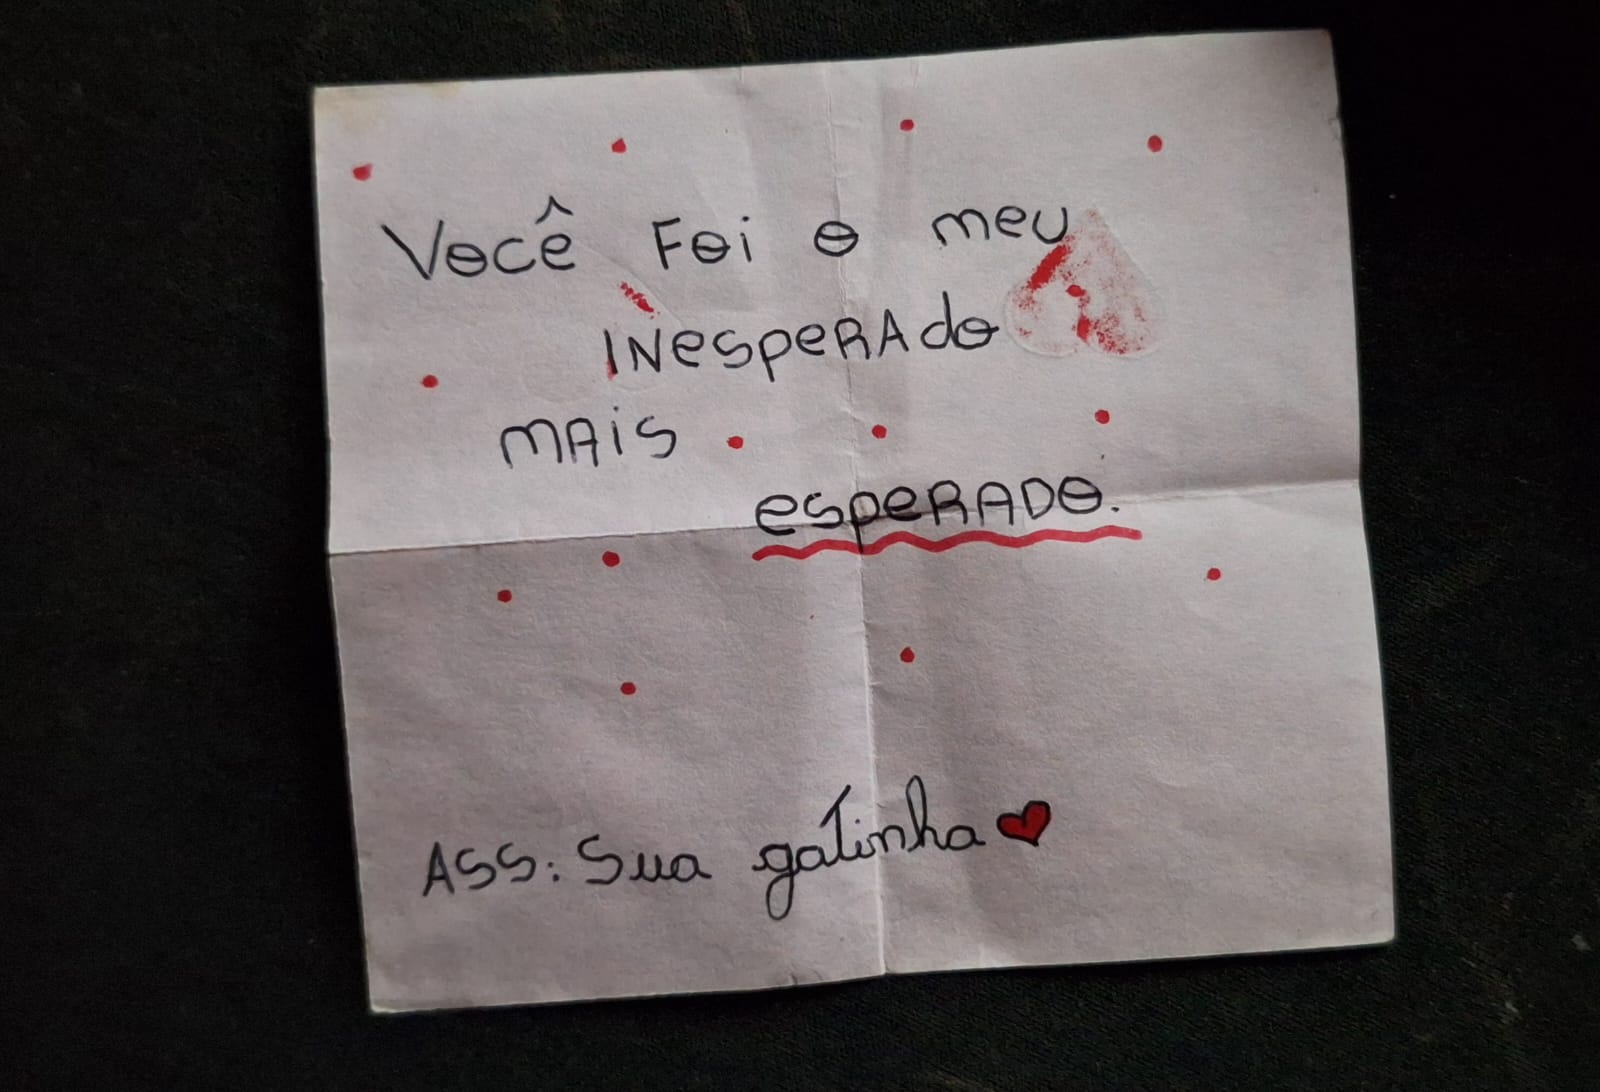 Você Foi o meu
INesperAdo
mAis
esperADO.
ASS: Sua gatinha